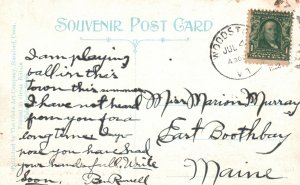 SOUVENIR POST CARD
WOODST
JUL
I am playing
ball in this
town this summer
I have not heard
from you for a
long time. I sup-
pose you have had
your hands full. Write
soon, B. Russell
Miss Marion Murray
East Boothbay
Maine